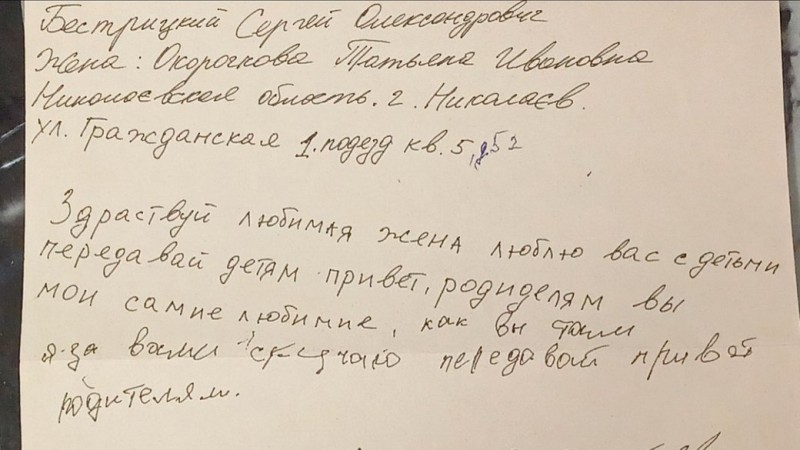 Бестрицкий Сергей Олександрович
Жена: Окорочкова Татьяна Ивановна
Николоевская область. г. Николаєв.
ул. Гражданская 1. подезд кв. 5, д. 52
Здраствуй любимая жена люблю вас с детьми
передавай детям привет, родиделям вы
мои самие любимие, как вы там
я за вами скучаю передавай привет
родителям.